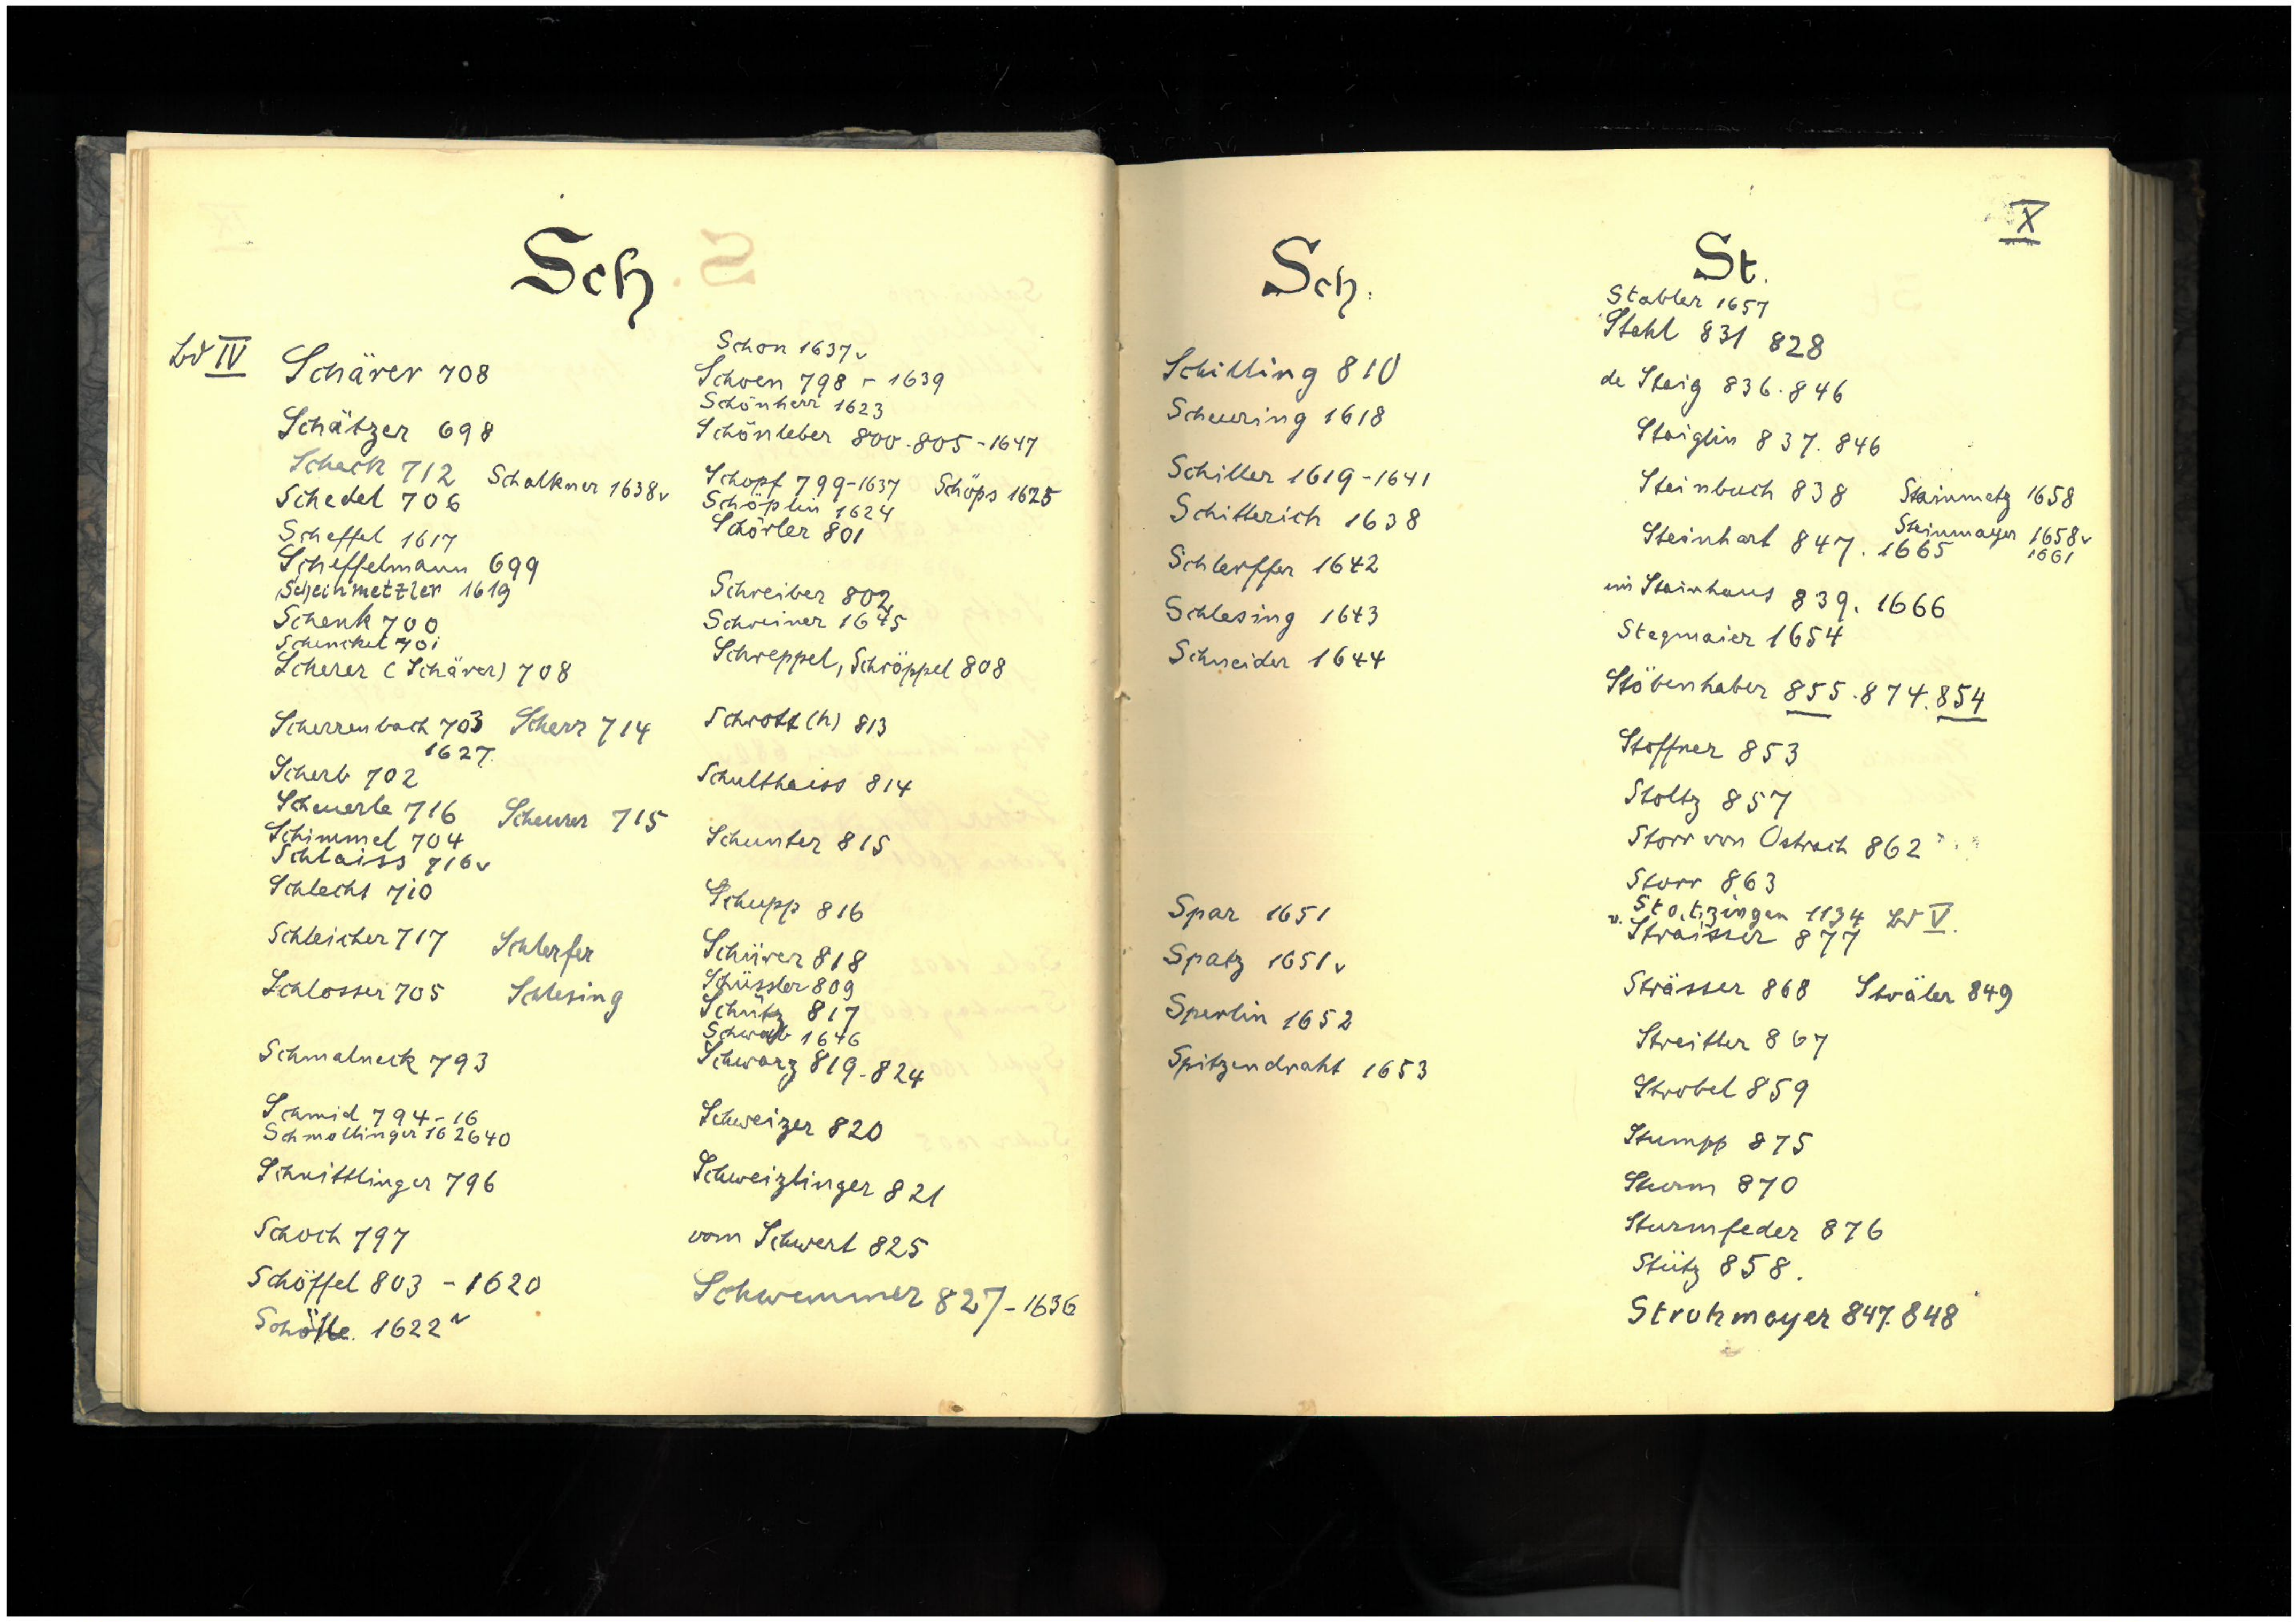 Sch
Bd IV
Schärer 708
Schätzer 698
Scheck 712
Schalkner 1638v
Schedel 706
Scheffel 1617
Scheffelmann 699
Scheinmetzler 1619
Schenk 700
Schenckel 701
Scherer (Schärer) 708
Scherrenbach 703 Scherr 714
1627.
Scherb 702
Scheuerle 716 Scheurer 715
Schimmel 704
Schlaiss 716v
Schlecht 710
Schleicher 717 Schlerfer
Schlosser 705 Schlesing
Schmalneck 793
Schmid 794-16
Schmollinger 16 2640
Schnittlinger 796
Schoch 797
Schöffel 803 - 1620
1622v
Schon 1637v
Schoen 798 - 1639
Schönherr 1623
Schönleber 800.805-1647
Schopf 799-1637 Schöps 1625
Schöplin 1624
Schörler 801
Schreiber 802
Schreiner 1645
Schreppel, Schröppel 808
Schrott(h) 813
Schulthaiss 814
Schunter 815
Schupp 816
Schürer 818
Schüssler 809
Schütz 817
Schwab 1646
Schwarz 819-824
Schweizer 820
Schweizlinger 821
vom Schwert 825
Schwemmer 827-1636
Sch.
Schilling 810
Scheuring 1618
Schiller 1619-1641
Schitterich 1638
Schlerffer 1642
Schlesing 1643
Schneider 1644
Spar 1651
Spatz 1651v
Sperlin 1652
Spitzendraht 1653
X
St.
Stabler 1657
Stahl 831 828
de Staig 836.846
Staiglin 837.846
Steinbach 838 Steinmetz 1658
Steinmayer 1658v
Steinhart 847.1665 1661
im Steinhaus 839.1666
Stegmaier 1654
Stöbenhaber 855.874.854
Stoffner 853
Stoltz 857
Storr von Ostrach 862
Storr 863
v. Stotzingen 1134 Bd V.
Straisser 877
Strässer 868 Sträler 849
Streitter 867
Strobel 859
Stumpp 875
Sturm 870
Sturmfeder 876
Stütz 858.
Strohmayer 847.848